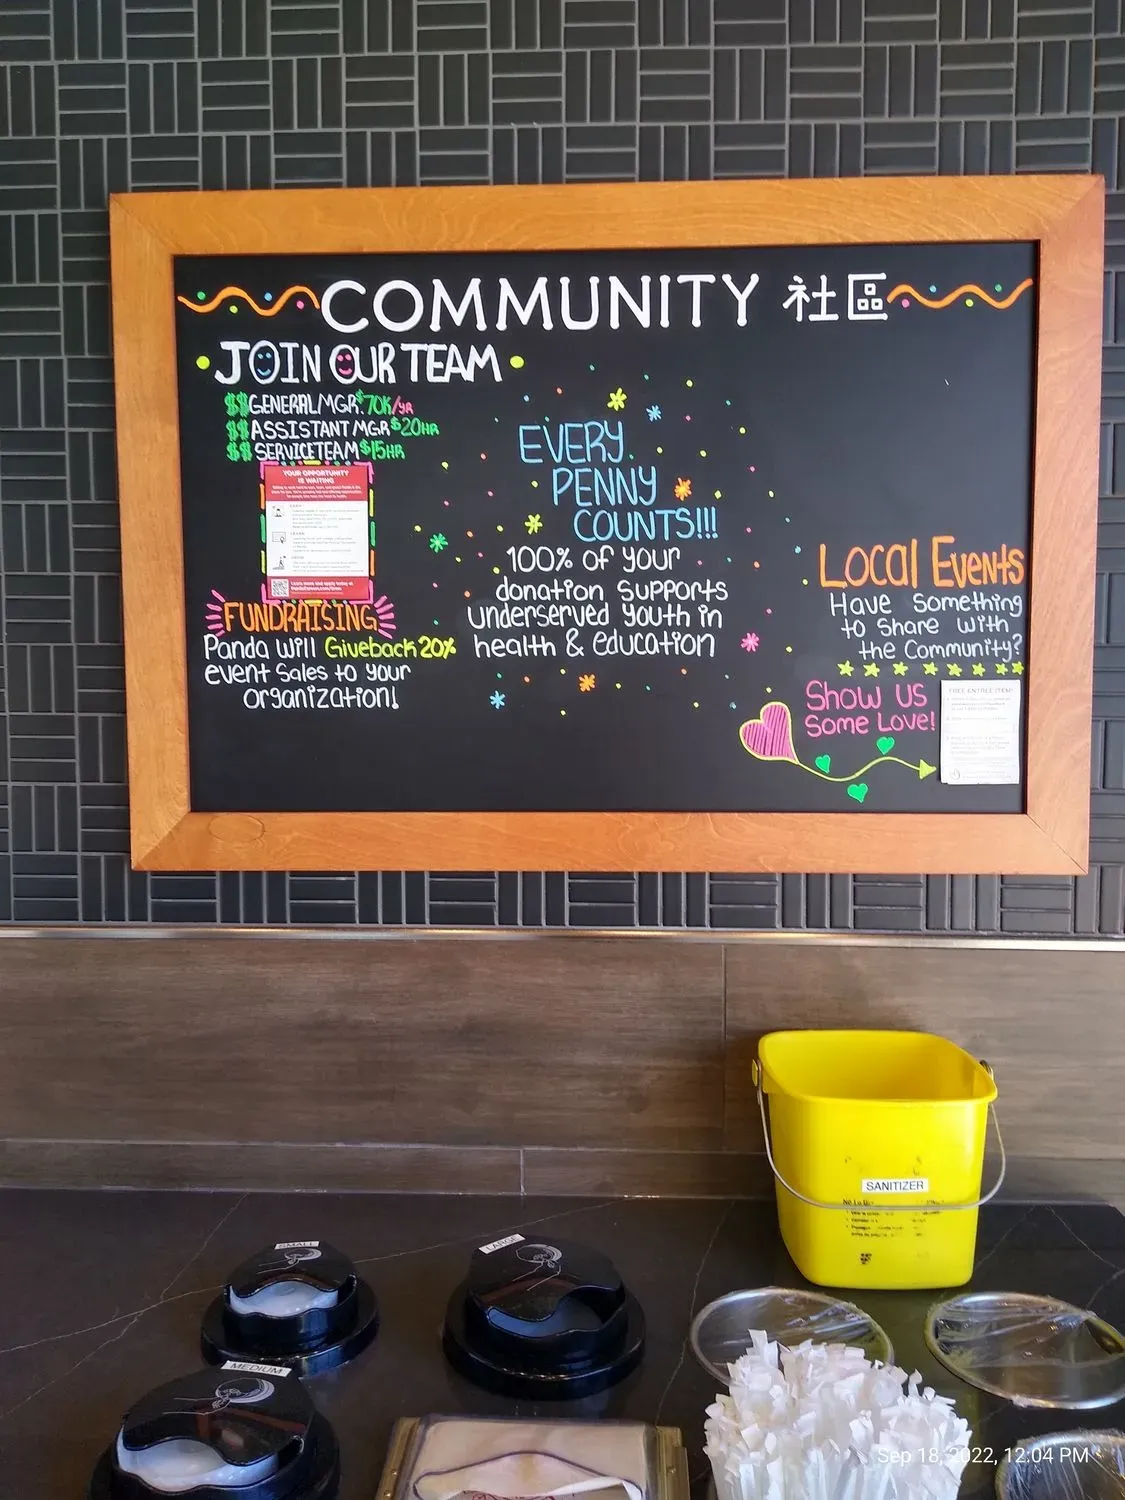 COMMUNITY 社區
JOIN OUR TEAM
$$GENERAL MGR.$70K/YR
$$ASSISTANT MGR $20HR
$$ SERVICETEAM $15HR
YOUR OPPORTUNITY
IS WAITING
Learn more and apply today at
FUNDRAISING
Panda will Giveback 20%
event Sales to your
organization!
EVERY
PENNY
COUNTS!!!
100% of your
donation supports
underserved youth in
health & education
Local Events
Have Something
to share with
the Community?
Show us
Some Love!
FREE ENTREE ITEM!
SANITIZER
SMALL
LARGE
MEDIUM
Sep 18, 2022, 12:04 PM